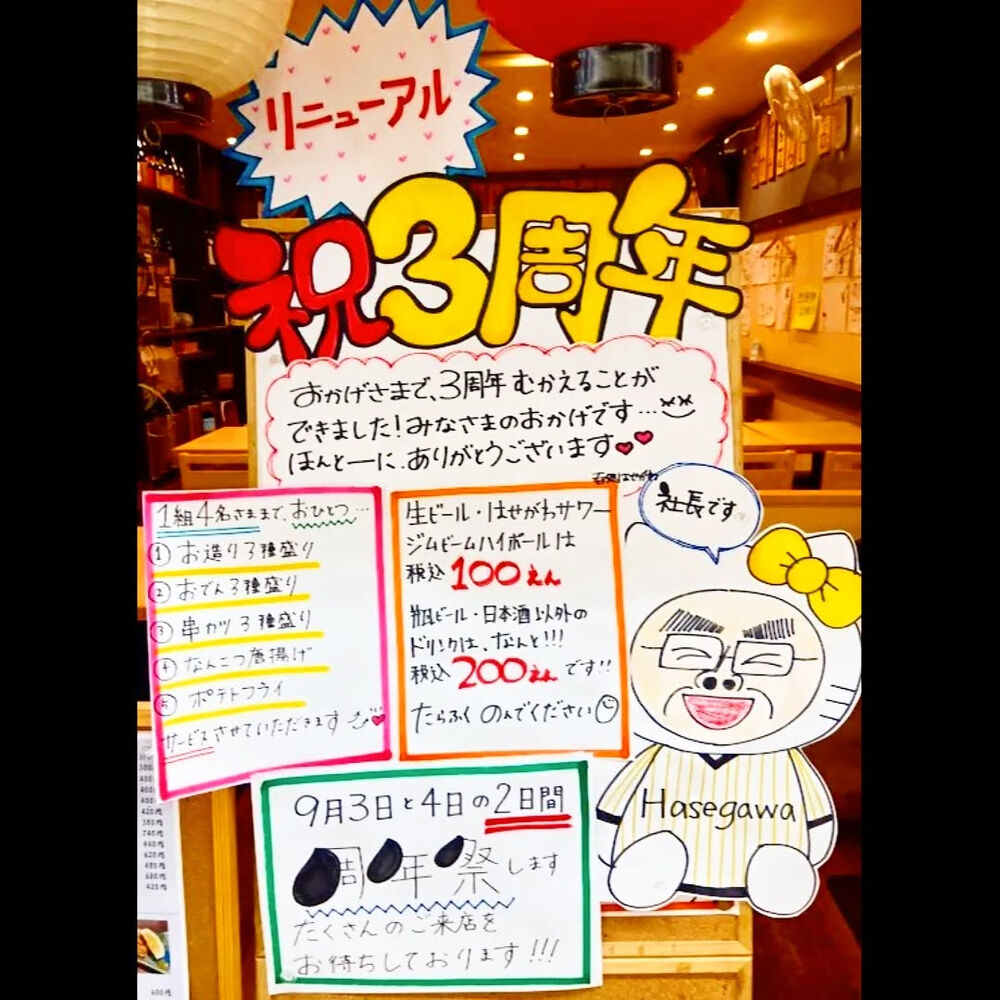 リニューアル
祝3周年
おかげさまで、3周年むかえることが
できました!みなさまのおかげです…
ほんとーに、ありがとうございます
社長です
1組4名さままで、おひとつ…
① お造り3種盛り
② おでん3種盛り
③ 串カツ3種盛り
④ なんこつ唐揚げ
⑤ ポテトフライ
サービスさせていただきます
生ビール・はせがわサワー
ジムビームハイボールは
税込100えん
瓶ビール・日本酒以外の
ドリンクは、なんと!!!
税込200えんです!!
たらふくのんでください
Hasegawa
9月3日と4日の2日間
周年祭します
たくさんのご来店を
お待ちしております!!!
600円